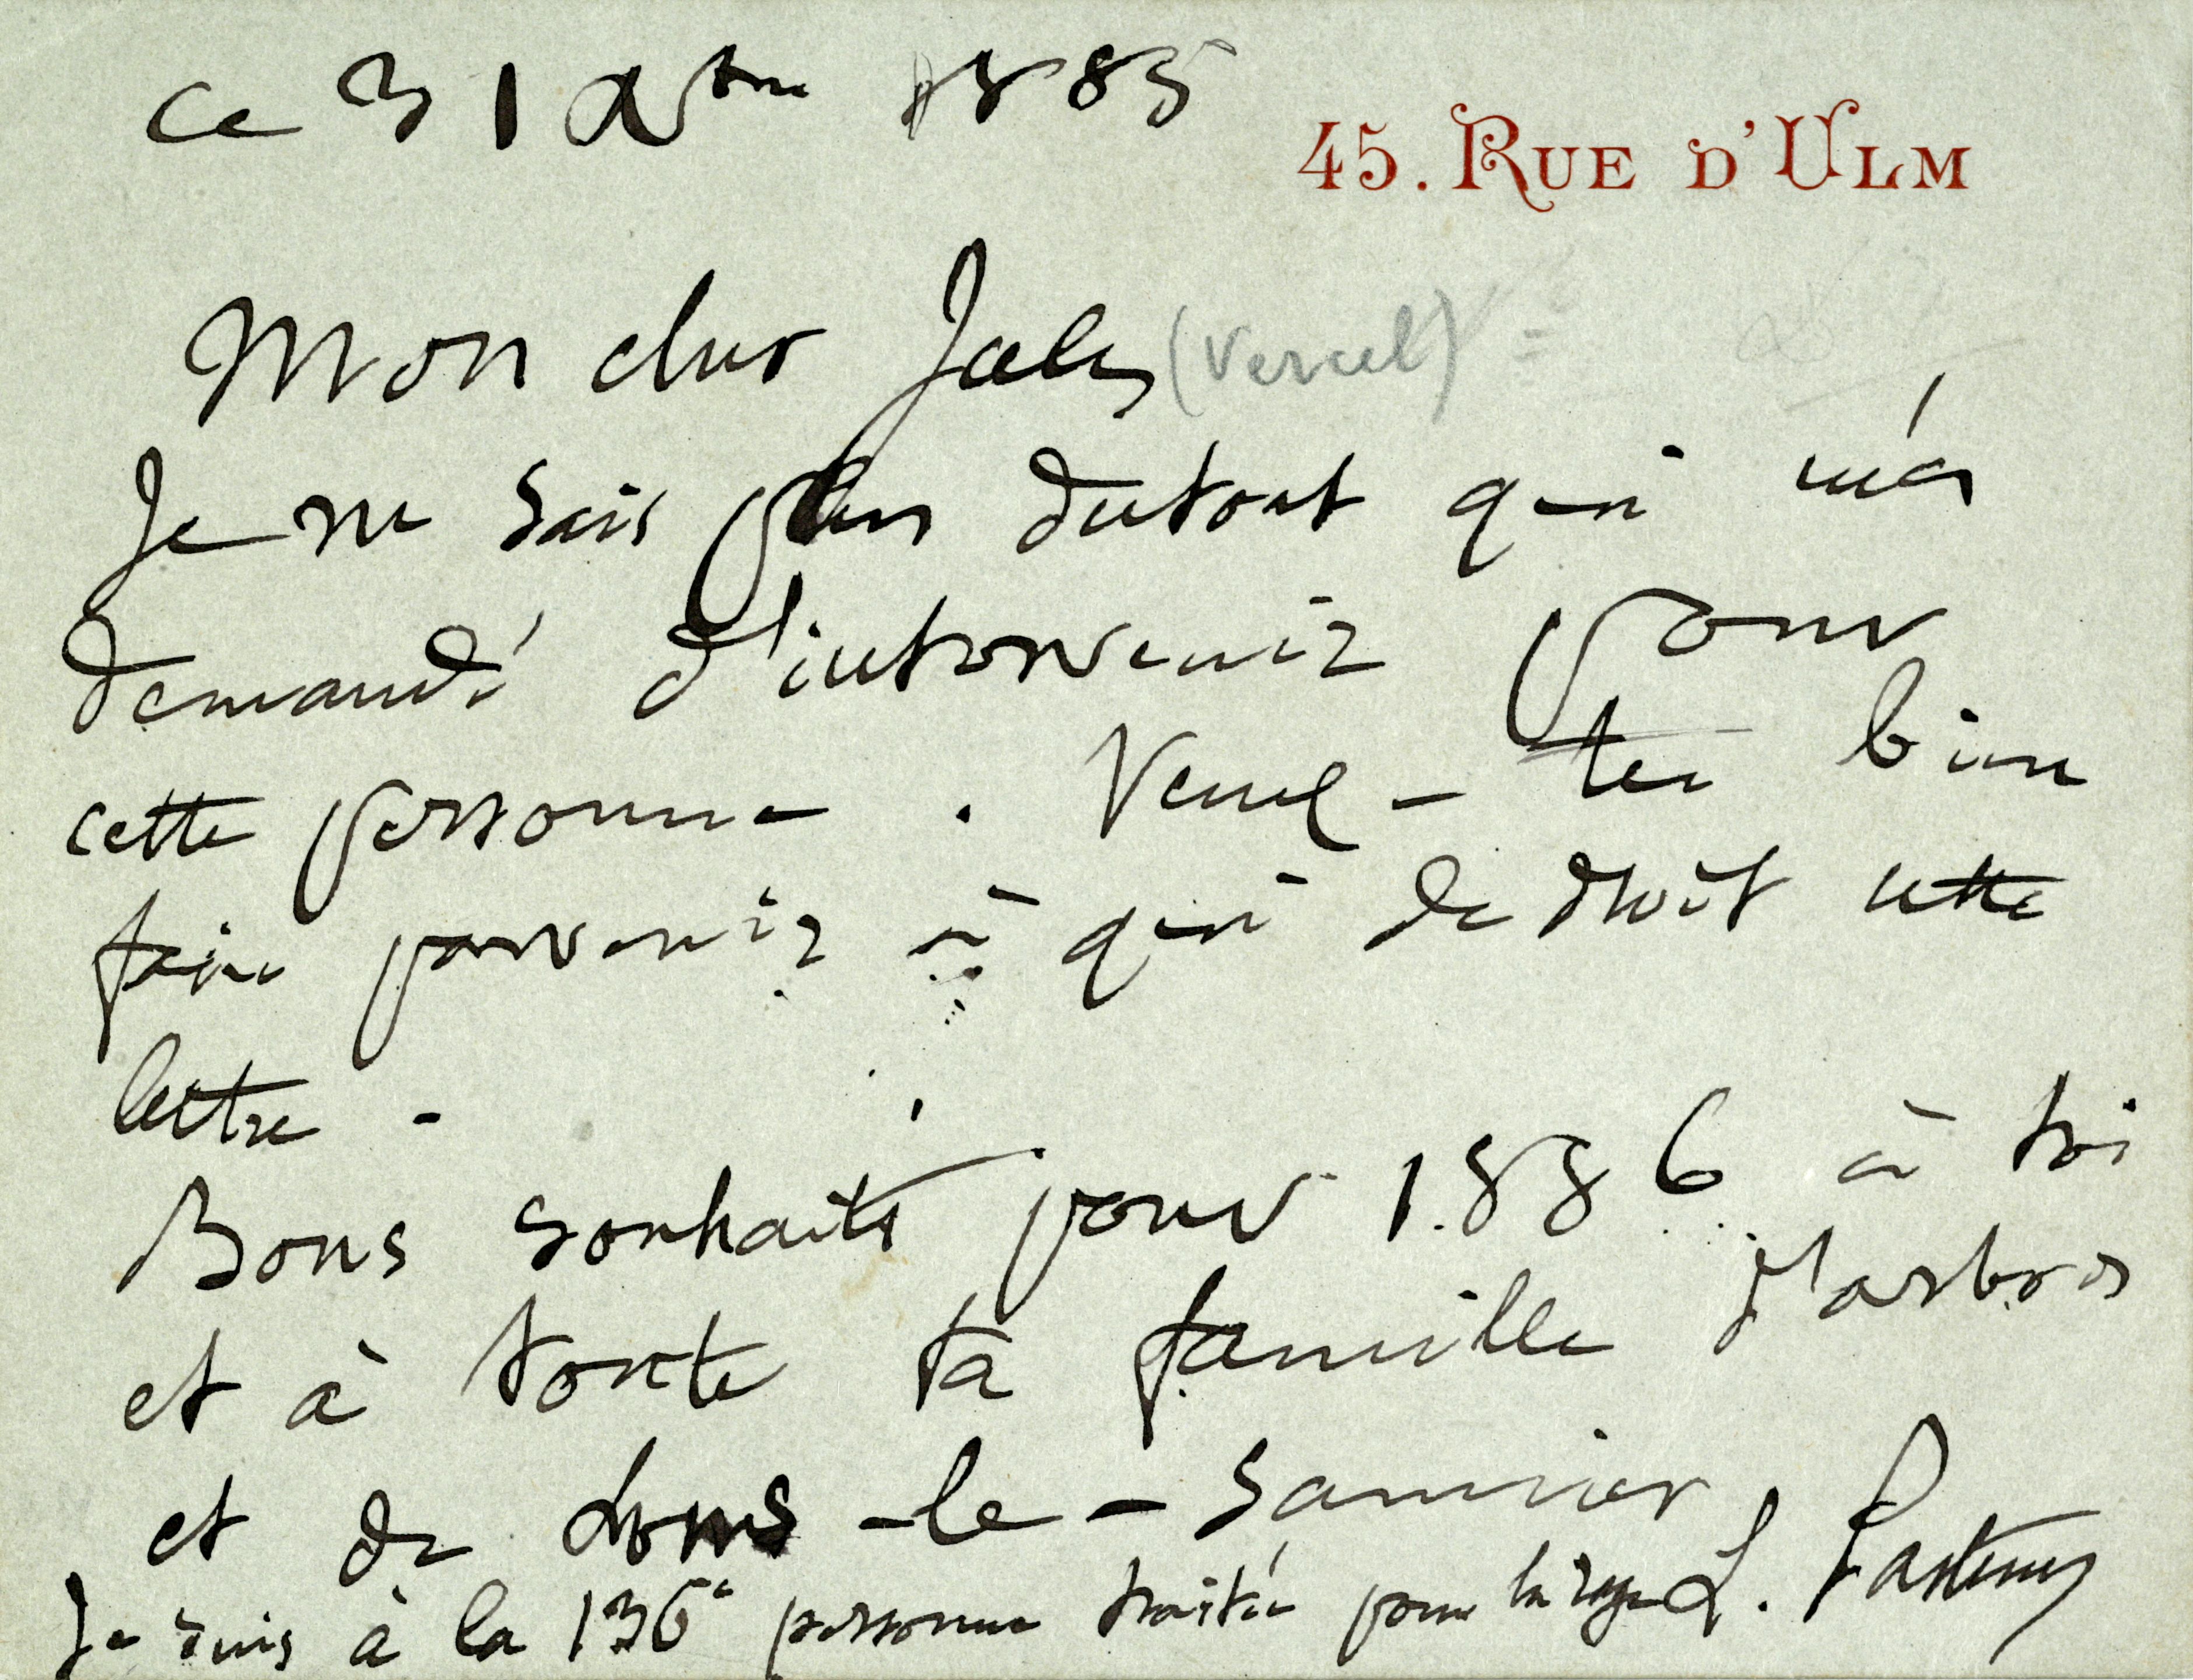 ce 31 Xbre 1885
45. RUE D'ULM
Mon cher Jules (Vercel)
Je ne sais plus dutout qui m'a
demandé d'intervenir pour
cette personne. Veux-tu bien
faire parvenir à qui de droit cette
lettre.
Bons souhaits pour 1886 à toi
et à toute ta famille d'arbois
et de Lons-le-Saunier
L. Pasteur
Je suis à la 136e personne traitée pour la rage